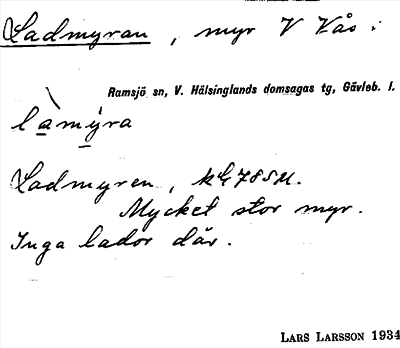 Ladmyran, myr V Vås i
Ramsjö sn, V. Hälsinglands domsagas tg, Gävleb. l.
làmýra
Ladmyren, kG 785 M.
Mycket stor myr.
Inga lador där.
LARS LARSSON 1934